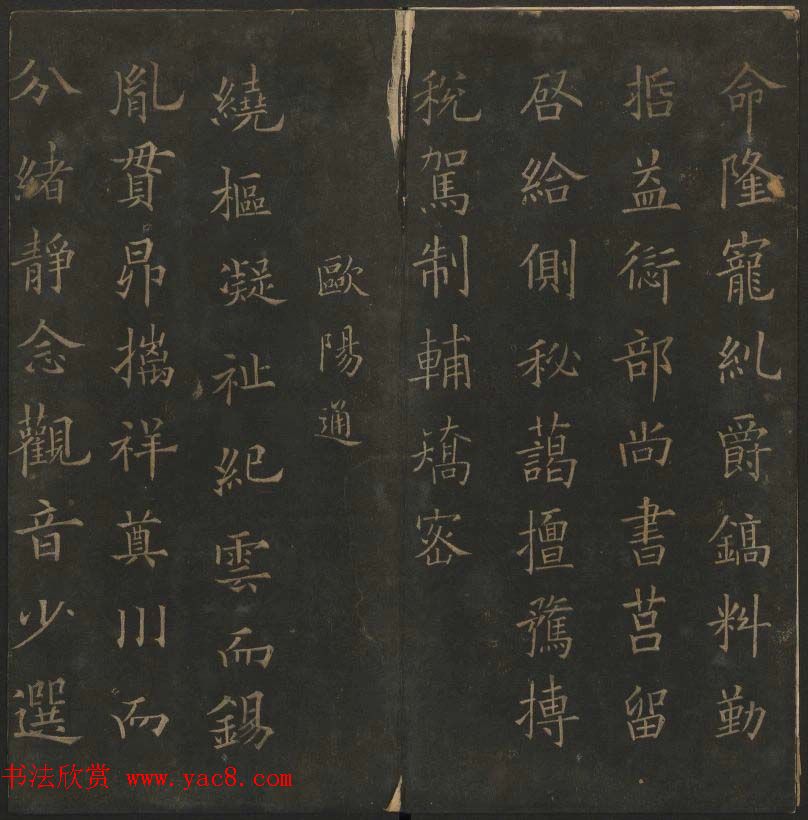 命隆寵糺爵鎬料勤
掋益衍部尚書莒留
啓給側秘藹擅鶩摶
稅駕制輔矯密
歐陽通
繞樞凝祉紀雲而錫
胤貫昴攜祥奠川而
分緒靜念觀音少選
书法欣赏 www.yac8.com